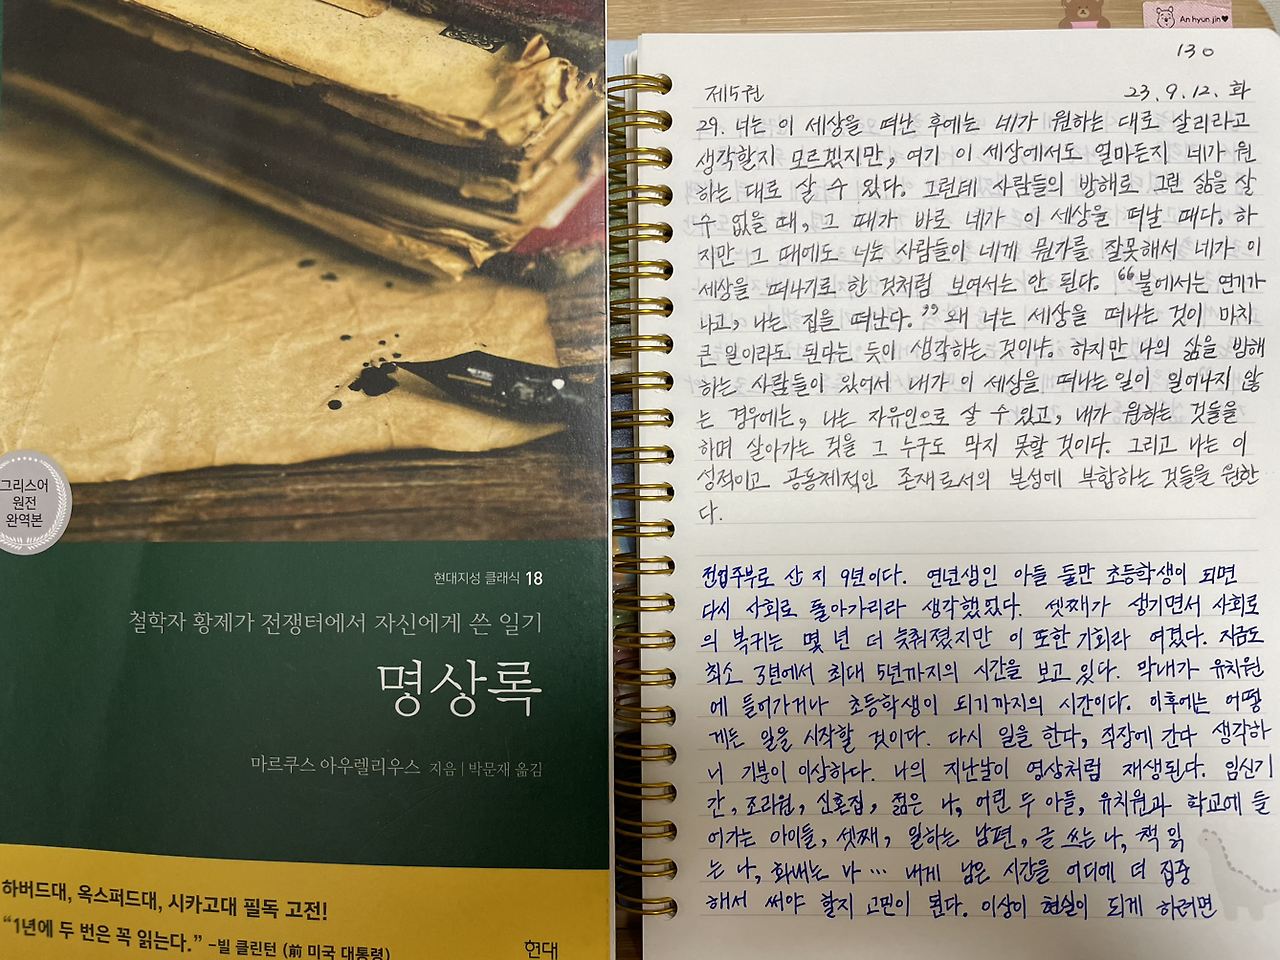 그리스어
원전
완역본
현대지성 클래식 18
철학자 황제가 전쟁터에서 자신에게 쓴 일기
명상록
마르쿠스 아우렐리우스 지음 | 박문재 옮김
하버드대, 옥스퍼드대, 시카고대 필독 고전!
“1년에 두 번은 꼭 읽는다.” –빌 클린턴 (前 미국 대통령)
현대
An hyun jin♥
130
제5권 23.9.12. 화
29. 너는 이 세상을 떠난 후에는 네가 원하는 대로 살리라고
생각할지 모르겠지만, 여기 이 세상에서도 얼마든지 네가 원
하는 대로 살 수 있다. 그런데 사람들의 방해로 그런 삶을 살
수 없을 때, 그 때가 바로 네가 이 세상을 떠날 때다. 하
지만 그 때에도 너는 사람들이 네게 뭔가를 잘못해서 네가 이
세상을 떠나기로 한 것처럼 보여서는 안 된다. “불에서는 연기가
나고, 나는 집을 떠난다.” 왜 너는 세상을 떠나는 것이 마치
큰 일이라도 된다는 듯이 생각하는 것이냐. 하지만 나의 삶을 방해
하는 사람들이 있어서 내가 이 세상을 떠나는 일이 일어나지 않
는 경우에는, 나는 자유인으로 살 수 있고, 내가 원하는 것들을
하며 살아가는 것을 그 누구도 막지 못할 것이다. 그리고 나는 이
성적이고 공동체적인 존재로서의 본성에 부합하는 것들을 원한
다.
전업주부로 산 지 9년이다. 연년생인 아들 둘만 초등학생이 되면
다시 사회로 돌아가리라 생각했었다. 셋째가 생기면서 사회로
의 복귀는 몇 년 더 늦춰졌지만 이 또한 기회라 여겼다. 지금도
최소 3년에서 최대 5년까지의 시간을 보고 있다. 막내가 유치원
에 들어가거나 초등학생이 되기까지의 시간이다. 이후에는 어떻
게든 일을 시작할 것이다. 다시 일을 한다, 직장에 간다 생각하
니 기분이 이상하다. 나의 지난날이 영상처럼 재생된다. 임신기
간, 조리원, 신혼집, 젊은 나, 어린 두 아들, 유치원과 학교에 들
어가는 아이들, 셋째, 일하는 남편, 글 쓰는 나, 책 읽
는 나, 화내는 나 … 내게 남은 시간을 어디에 더 집중
해서 써야 할지 고민이 된다. 이상이 현실이 되게 하려면